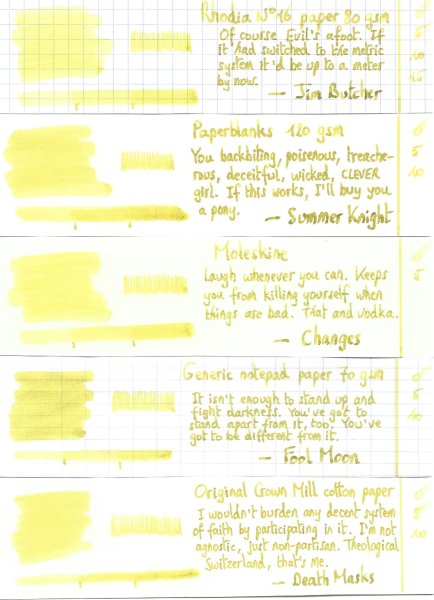 Rhodia N°16 paper 80 gsm
Of course Evil's afoot. If
it had switched to the metric
system it'd be up to a meter
by now.
— Jim Butcher
Paperblanks 120 gsm
You backbiting, poisenous, treache-
rous, deceitful, wicked, CLEVER
girl. If this works, I'll buy you
a pony.
— Summer Knight
5
10
Moleskine
Laugh whenever you can. Keeps
you from killing yourself when
things are bad. That and vodka.
— Changes
5
Generic notepad paper 70 gsm
It isn't enough to stand up and
fight darkness. You've got to
stand apart from it, too. You've
got to be different from it.
— Fool Moon
5
Original Crown Mill cotton paper
I wouldn't burden any decent system
of faith by participating in it. I'm not
agnostic, just non-partisan. Theological
Switzerland, that's me.
— Death Masks
5
10